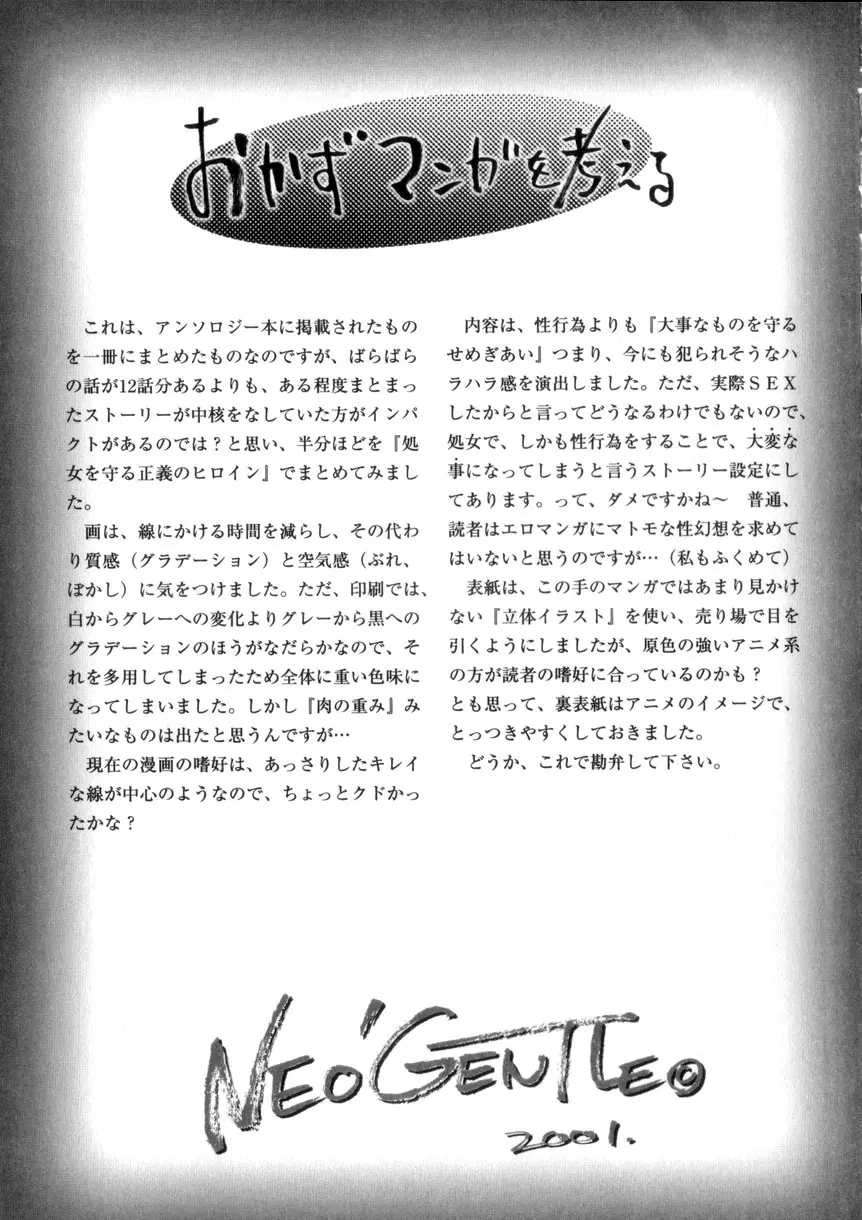 おかずマンガを考える
これは、アンソロジー本に掲載されたもの
を一冊にまとめたものなのですが、ばらばら
の話が12話分あるよりも、ある程度まとまっ
たストーリーが中核をなしていた方がインパ
クトがあるのでは？と思い、半分ほどを『処
女を守る正義のヒロイン』でまとめてみまし
た。
画は、線にかける時間を減らし、その代わ
り質感（グラデーション）と空気感（ぶれ、
ぼかし）に気をつけました。ただ、印刷では、
白からグレーへの変化よりグレーから黒への
グラデーションのほうがなだらかなので、そ
れを多用してしまったため全体に重い色味に
なってしまいました。しかし『肉の重み』み
たいなものは出たと思うんですが…
現在の漫画の嗜好は、あっさりしたキレイ
な線が中心のようなので、ちょっとクドかっ
たかな？
内容は、性行為よりも『大事なものを守る
せめぎあい』つまり、今にも犯られそうなハ
ラハラ感を演出しました。ただ、実際ＳＥＸ
したからと言ってどうなるわけでもないので、
処女で、しかも性行為をすることで、大変な
事になってしまうと言うストーリー設定にし
てあります。って、ダメですかね～　普通、
読者はエロマンガにマトモな性幻想を求めて
はいないと思うのですが…（私もふくめて）
表紙は、この手のマンガではあまり見かけ
ない『立体イラスト』を使い、売り場で目を
引くようにしましたが、原色の強いアニメ系
の方が読者の嗜好に合っているのかも？
とも思って、裏表紙はアニメのイメージで、
とっつきやすくしておきました。
どうか、これで勘弁して下さい。
NEO'GENTLE©
2001.